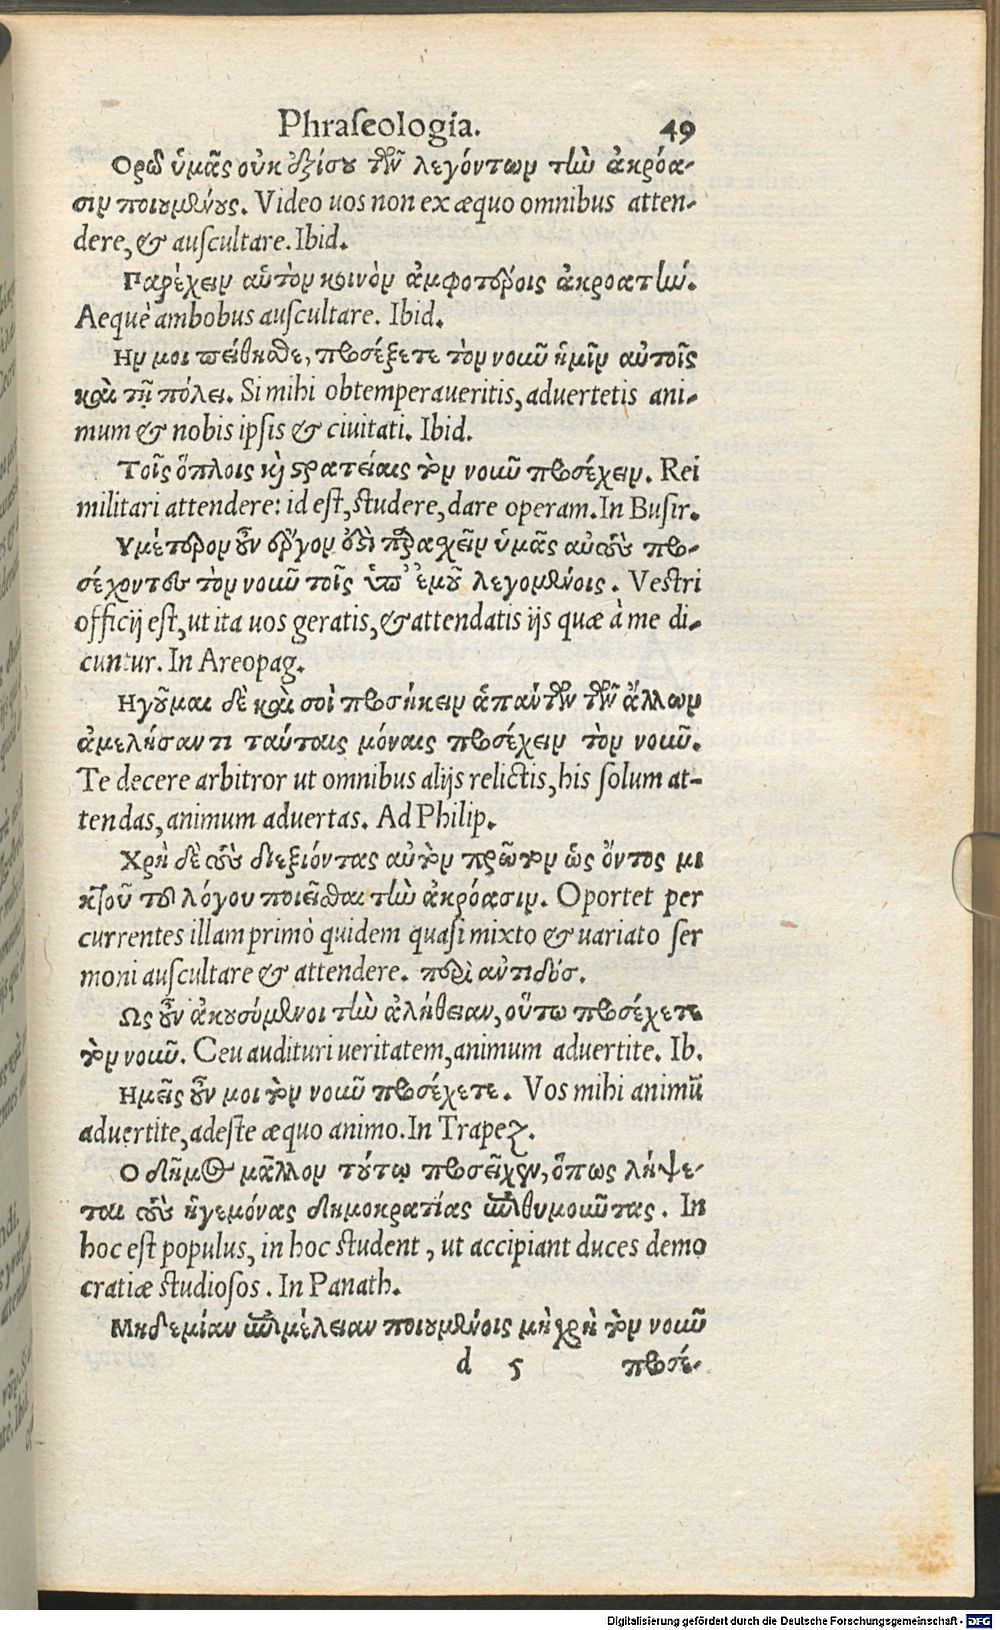 Phraseologia. 49
Ορῶ ὑμᾶς οὐκ ἐξίσου τῶν λεγόντων τὴν ἀκρόα-
σιν ποιουμένους. Video uos non ex æquo omnibus atten-
dere, & auscultare. Ibid.
Παρέχειν αὑτὸν κοινὸν ἀμφοτέροις ἀκροατήν.
Aequè ambobus auscultare. Ibid.
Ην μοι πείθησθε, προσέξετε τὸν νοῦν ἡμῖν αὐτοῖς
καὶ τῇ πόλει. Si mihi obtemperaueritis, aduertetis ani-
mum & nobis ipsis & ciuitati. Ibid.
Τοῖς ὅπλοις καὶ στρατείαις τὸν νοῦν προσέχειν. Rei
militari attendere: id est, studere, dare operam. In Busir.
Υμέτερον οὖν ἔργον ἐστὶ πράσχειν ὑμᾶς αὐτοὺς προ-
σέχοντας τὸν νοῦν τοῖς ὑπ' ἐμοῦ λεγομένοις. Vestri
officij est, ut ita uos geratis, & attendatis ijs quæ à me di-
cuntur. In Areopag.
Ηγοῦμαι δὲ καὶ σοὶ προσήκειν ἁπάντων τῶν ἄλλων
ἀμελήσαντι ταύταις μόναις προσέχειν τὸν νοῦν.
Te decere arbitror ut omnibus alijs relictis, his solum at-
tendas, animum aduertas. Ad Philip.
Χρὴ δὲ τοὺς διεξιόντας αὐτὸν πρῶτον ὡς ὄντος μι
κτοῦ τοῦ λόγου ποιεῖσθαι τὴν ἀκρόασιν. Oportet per
currentes illam primò quidem quasi mixto & uariato ser
moni auscultare & attendere. περὶ ἀντιδόσ.
Ως οὖν ἀκουσόμενοι τὴν ἀλήθειαν, οὕτω προσέχετε
τὸν νοῦν. Ceu audituri ueritatem, animum aduertite. Ib.
Ημεῖς οὖν μοι τὸν νοῦν προσέχετε. Vos mihi animū
aduertite, adeste æquo animo. In Trapez.
Ο δῆμος μᾶλλον τούτῳ προσεῖχεν, ὅπως λήψε-
ται τοὺς ἡγεμόνας δημοκρατίας ἐπιθυμοῦντας. In
hoc est populus, in hoc student, ut accipiant duces demo
cratiæ studiosos. In Panath.
Μηδεμίαν ἐπιμέλειαν ποιουμένοις μὴ χρὴ τὸν νοῦν
d 5 προσέ-
Digitalisierung gefördert durch die Deutsche Forschungsgemeinschaft - DFG